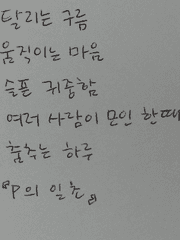 달리는 구름
움직이는 마음
슬픈 귀중함
여러 사람이 모인 한때
춤추는 하루
『P의 일초』